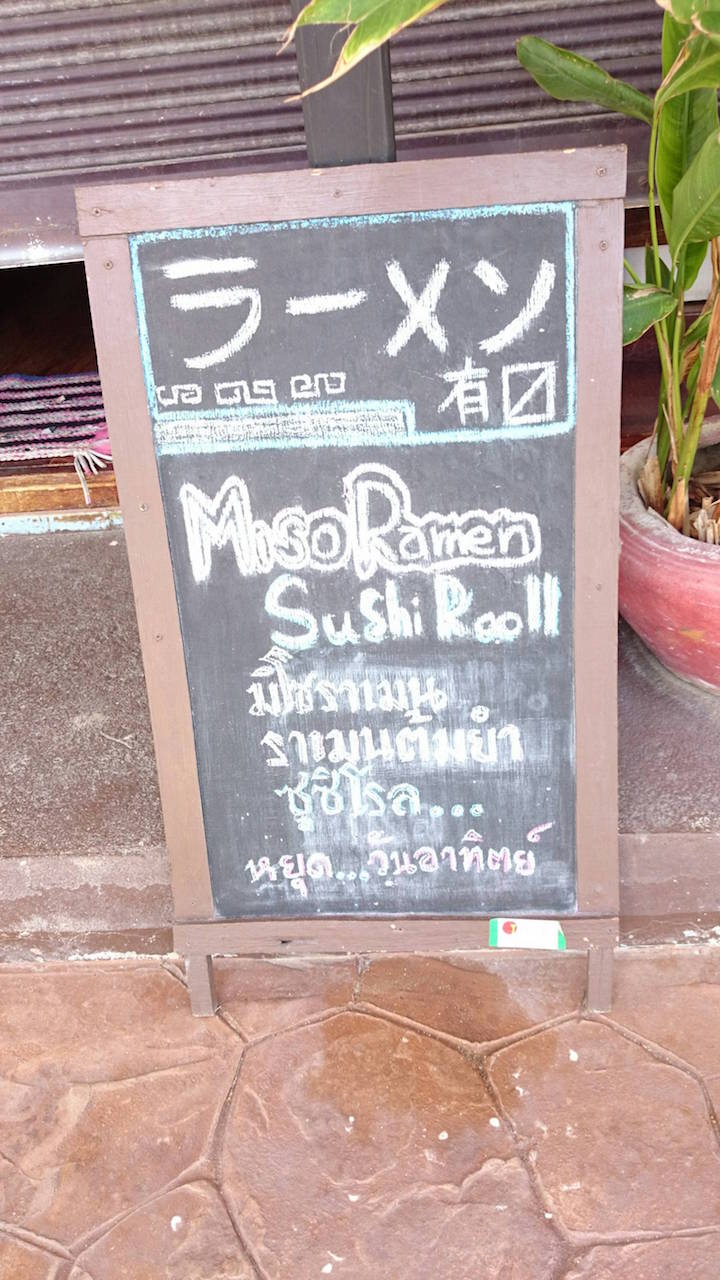 ラーメン
有〼
Miso Ramen
Sushi Rooll
มิโซราเมน
ราเมนต้มยำ
ซูชิโรล...
หยุด...วันอาทิตย์